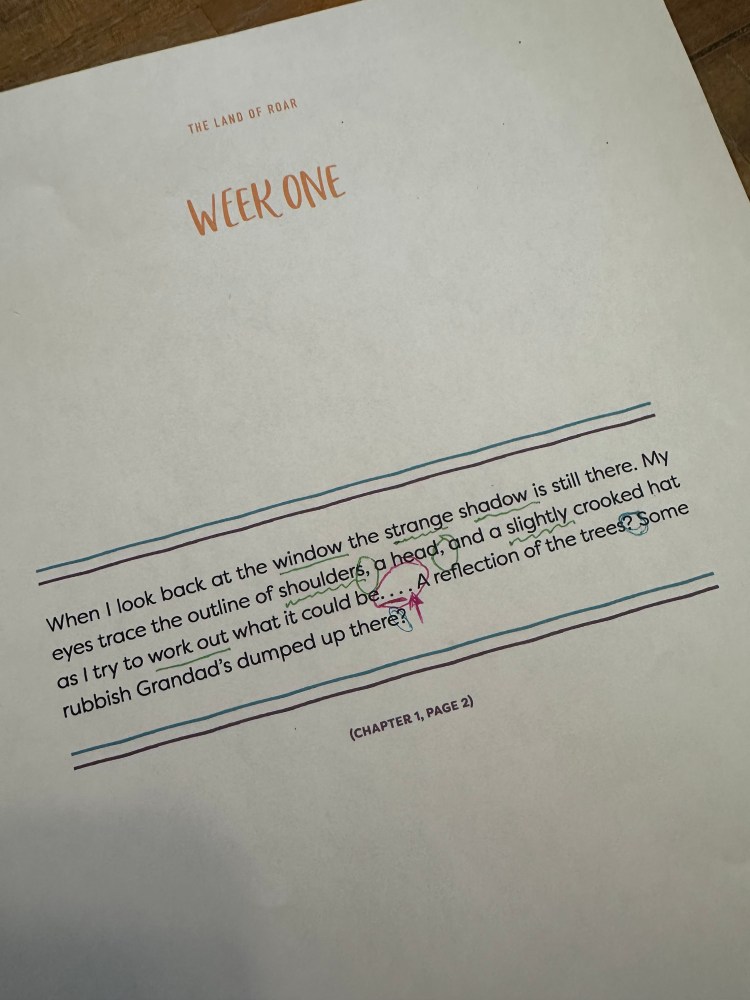 THE LAND OF ROAR
WEEK ONE
When I look back at the window the strange shadow is still there. My
eyes trace the outline of shoulders, a head, and a slightly crooked hat
as I try to work out what it could be.... A reflection of the trees? Some
rubbish Grandad's dumped up there?
(CHAPTER 1, PAGE 2)